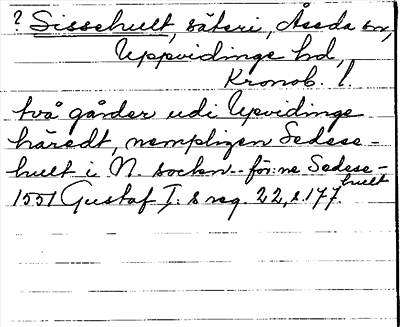 ? Sissehult, säteri, Åseda sn,
Uppvidinge hd,
Kronob. l.
två gårder udi Upvidinge
häredt, nempligen Sedese-
hult i N. socken -- för:ne Sedese-
hult
1551 Gustaf I:s reg. 22, s. 177.